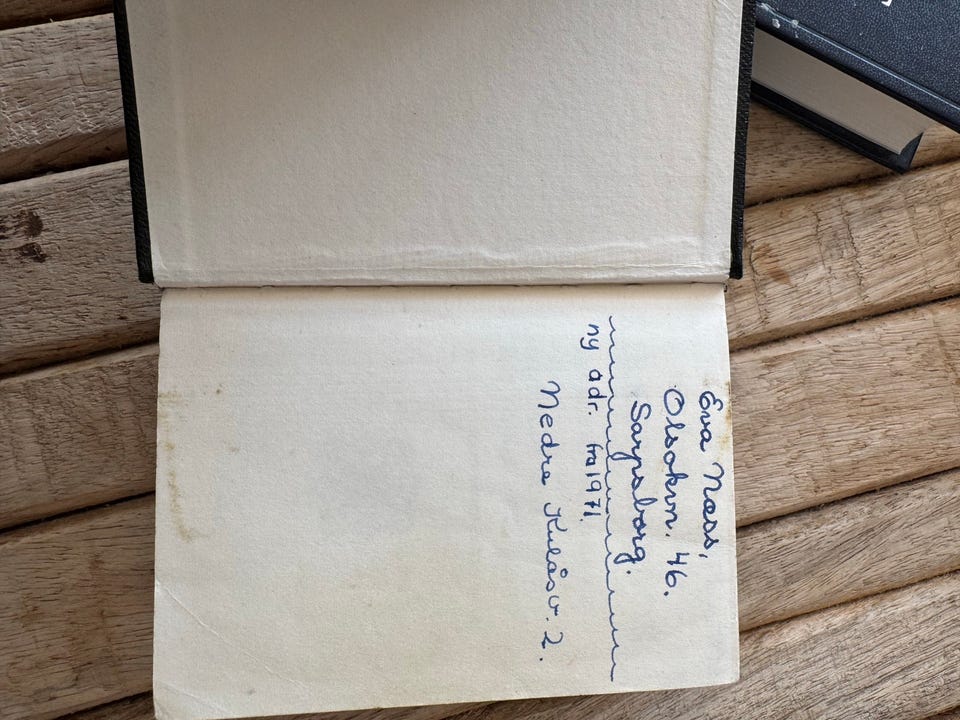 Eva Næss,
Olsokvn. 46.
Sarpsborg.
ny adr. fra 1971.
Nedre Kulåsv. 2.